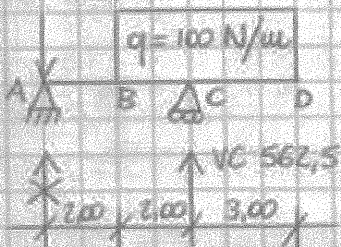 q = 100 N/m
A B C D
VC 562,5
2,00 2,00 3,00